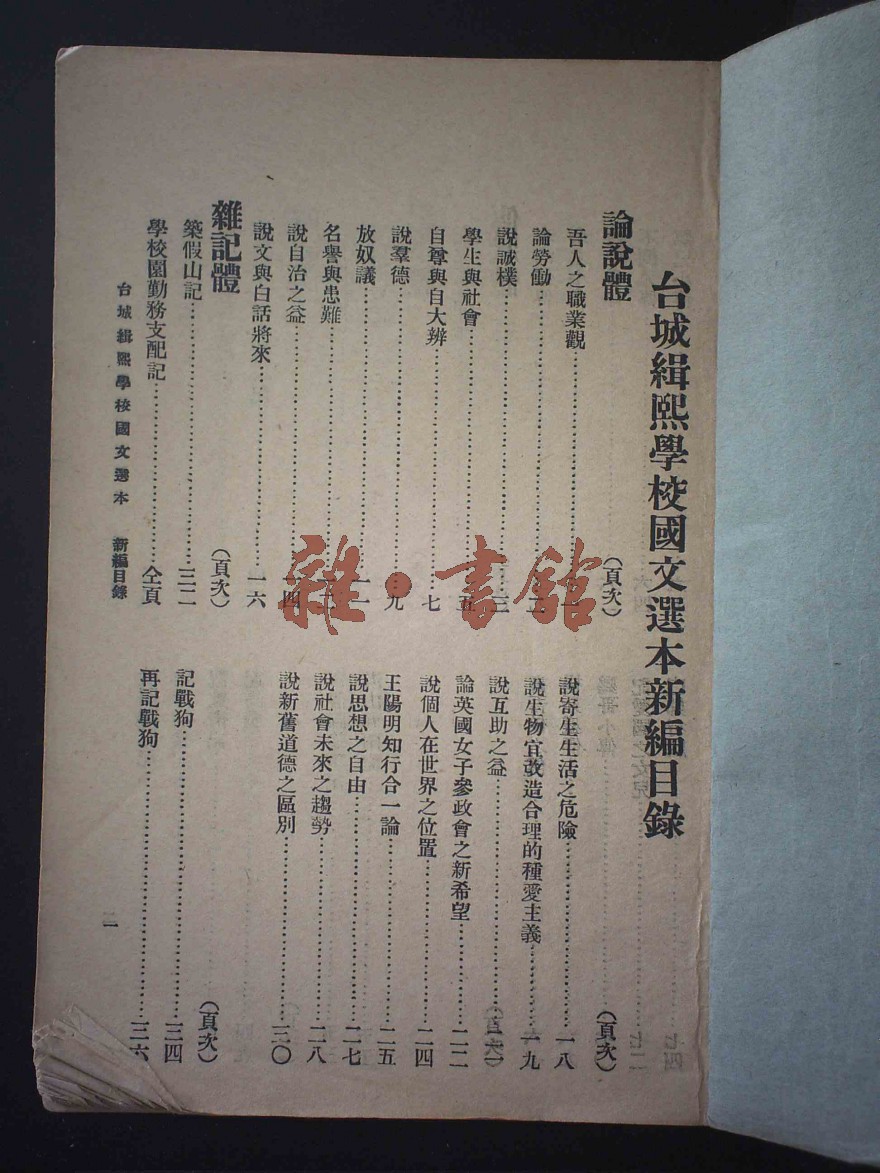 台城緝熙學校國文選本新編目錄
論說體 (頁次) (頁次)
吾人之職業觀 一
論勞働 二
說誠樸 三
學生與社會 五
自尊與自大辨 七
說羣德 九
放奴議 一一
名譽與患難
說自治之益 一四
說文與白話將來 一六
說寄生生活之危險 一八
說生物宜改造合理的種愛主義 一九
說互助之益
論英國女子參政會之新希望 二二
說個人在世界之位置 二四
王陽明知行合一論 二五
說思想之自由 二七
說社會未來之趨勢 二八
說新舊道德之區別 三〇
雜記體 (頁次) (頁次)
築假山記 三二
學校園勤務支配記 仝頁
記戰狗 三四
再記戰狗 三六
台城緝熙學校國文選本 新編目錄
雜·書館